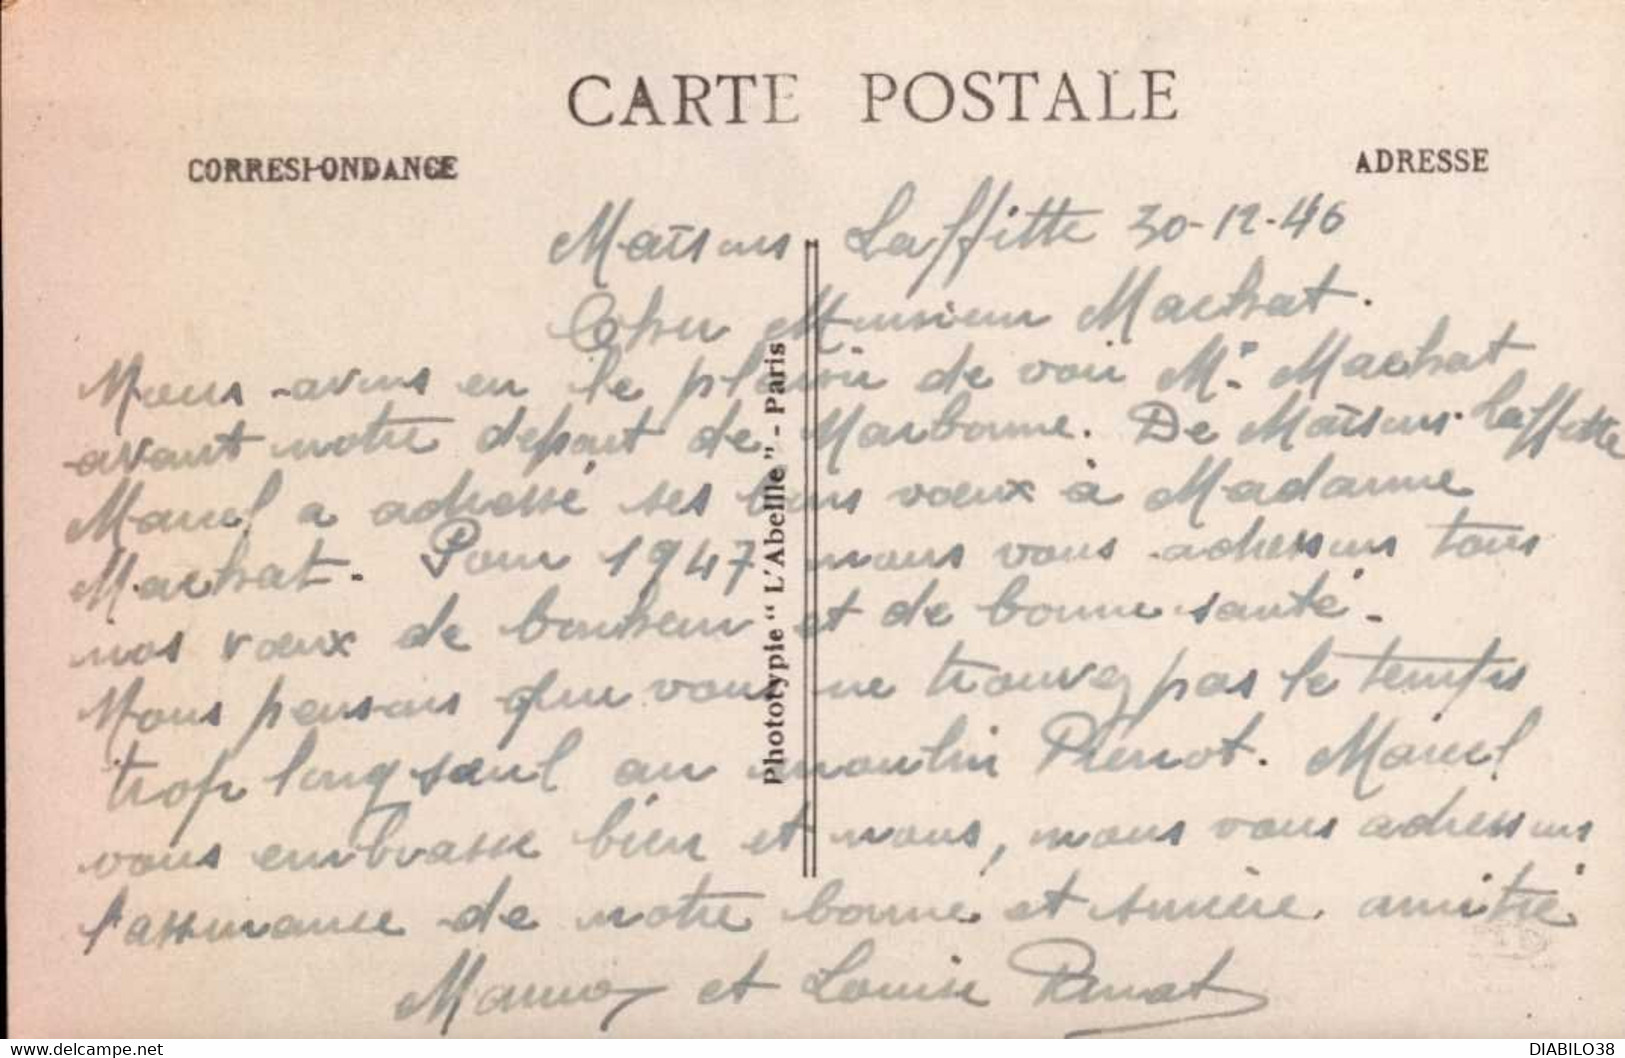 CARTE POSTALE
CORRESPONDANCE
ADRESSE
Maïsons Laffitte 30-12-46
Cher Monsieur Machat.
Nous avons eu le plaisir de voir Mr. Machat
avant notre depart de Narbonne. De Maïsons Laffitte
Marcel a adressé ses bons voeux à Madame
Machat. Pour 1947 nous vous adressons tous
nos voeux de bonheur et de bonne santé.
Nous pensons que vous ne trouvez pas le temps
trop long seul au moulin Pierrot. Marcel
vous embrasse bien et nous, nous vous adressons
l'assurance de notre bonne et sincère amitié
et Louise
Phototypie "L'Abeille" - Paris
DIABILO38